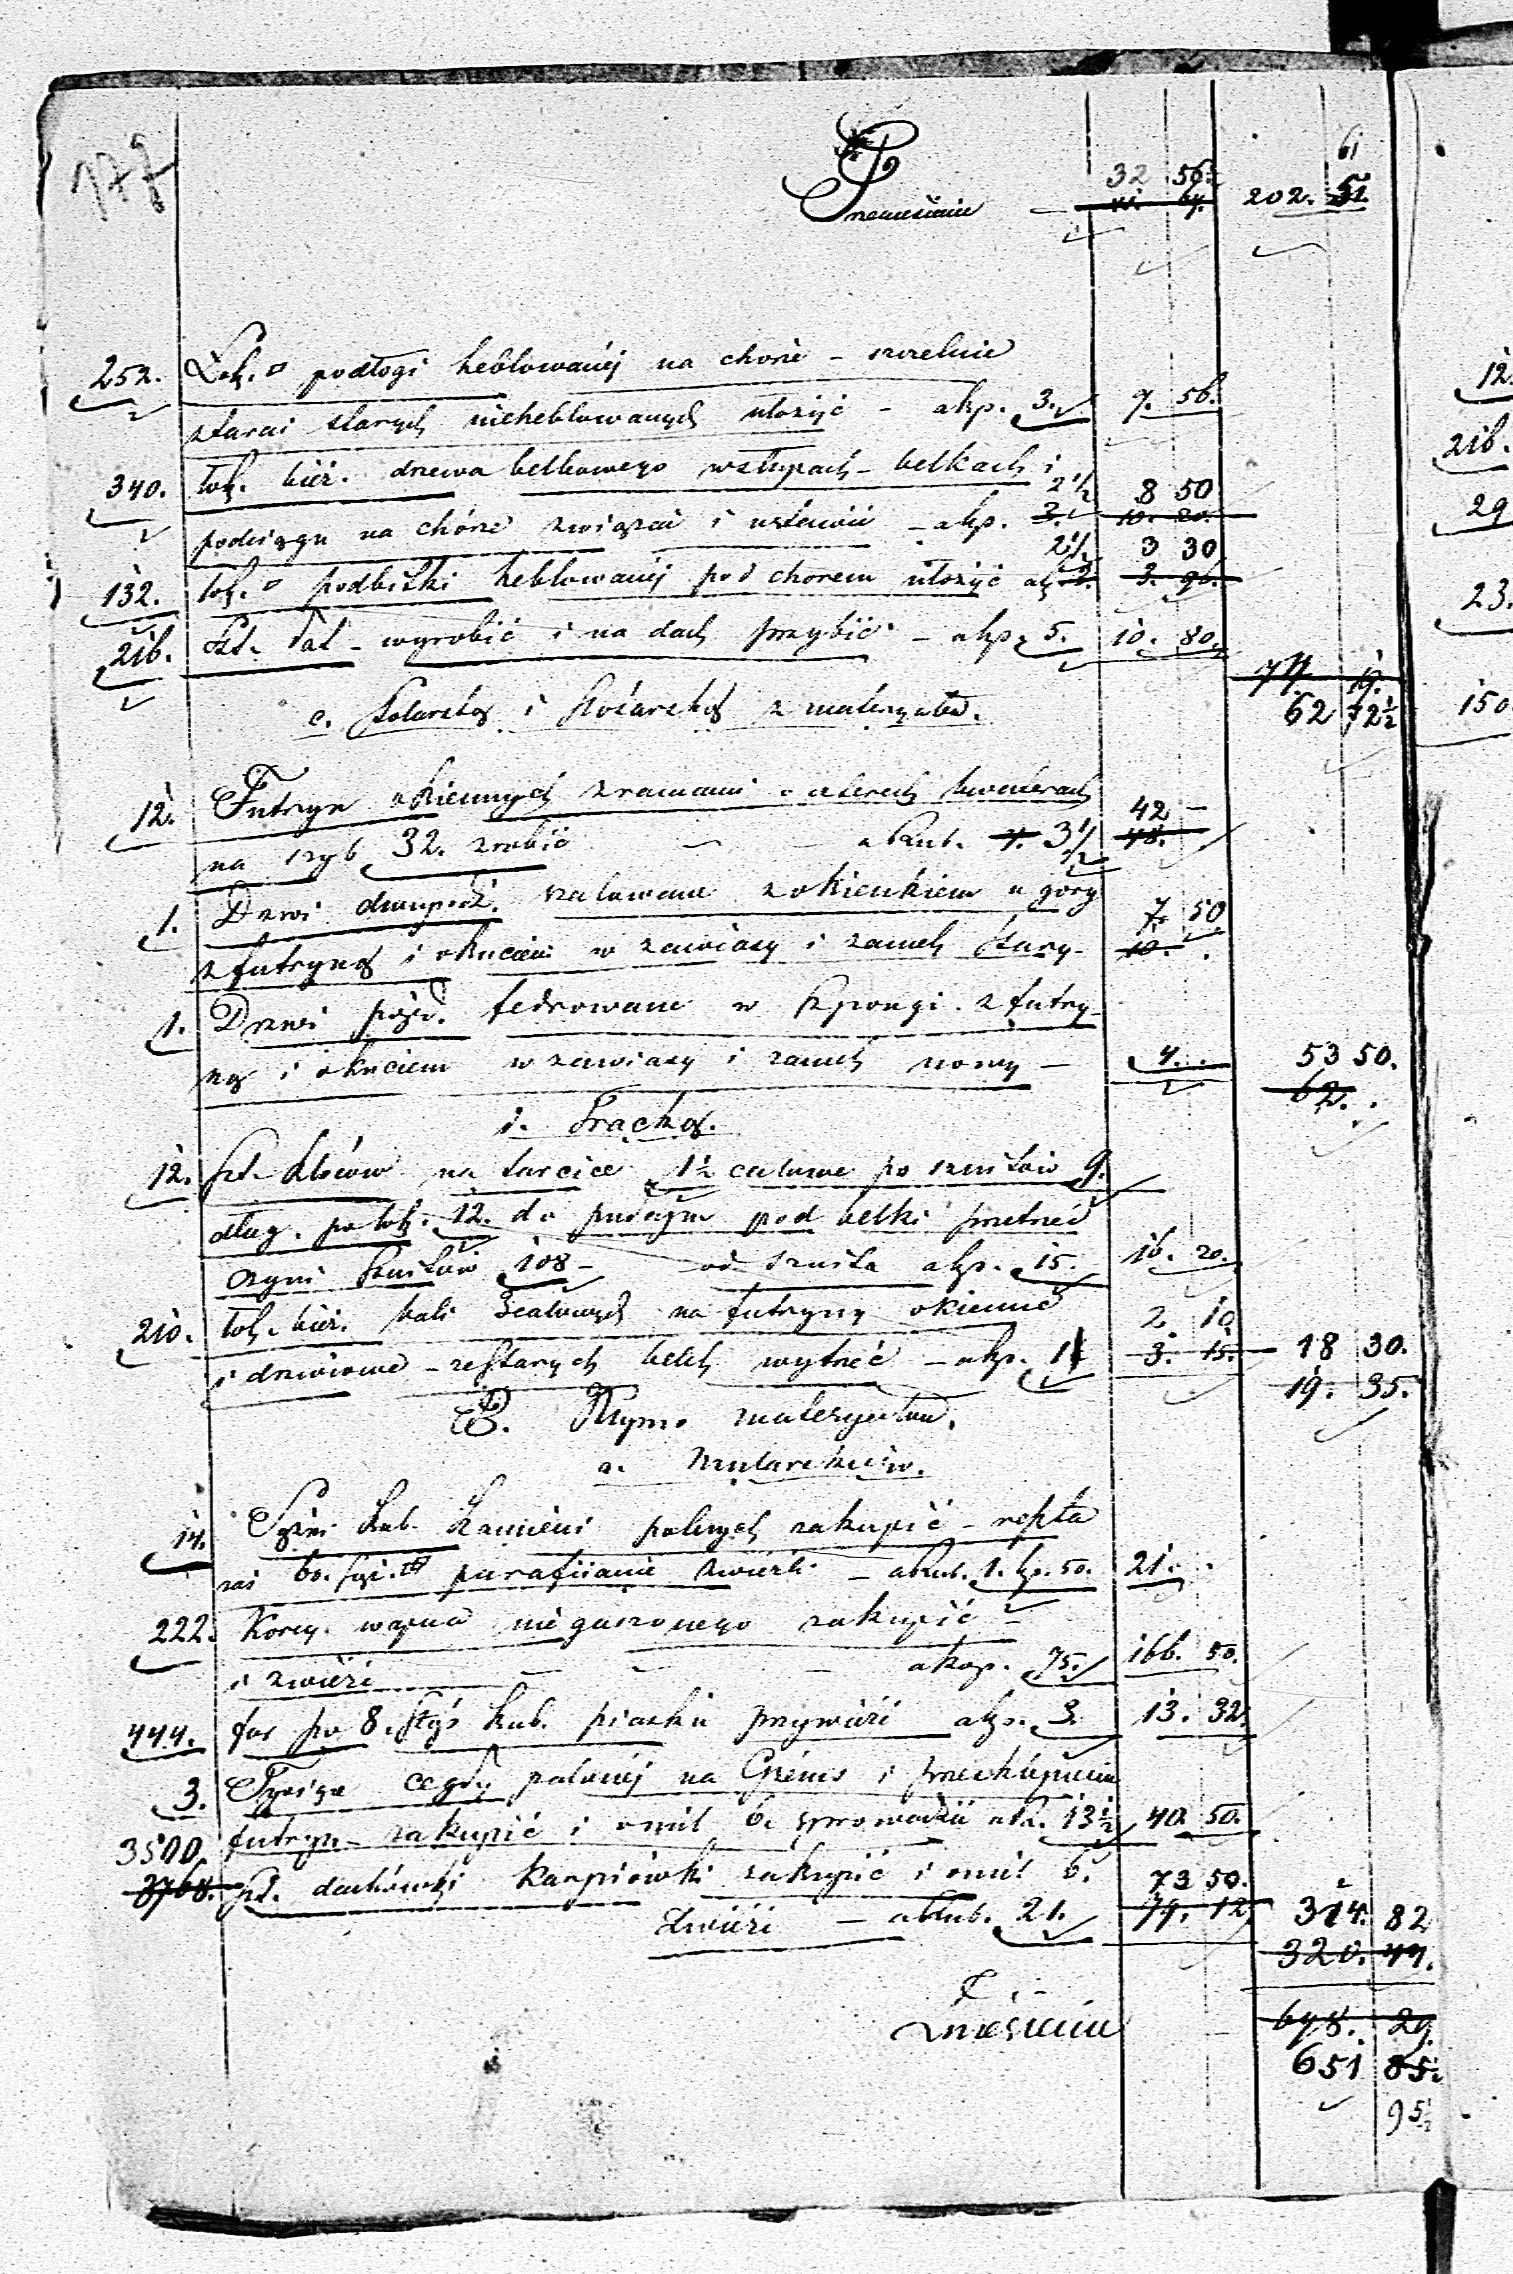 177
32 56½ 202. 61
Przeniesienie
252. Łok. □ podłogi heblowanéj na chórze – szczelnie
z tarcic starych nieheblowanych ułożyć – a kop. 3. 7. 56.
340. łok. bież. drzewa belkowego w słupach – belkach i
podciągu na chórze związać i ustawić – a kop. 3. 2½ 8 50
10. 20.
132. łok. □ podbitki heblowanéj pod chórem ułożyć a k. 2½ 3 30
3. 96.
216. Szt. łat – wyrobić i na dach przybić – a kop. 5. 10. 80.
62 72½
c. Stolarską i Ślósarską z materyałem.
12. Futryn okiennych z ramami o czterech kwaterach
na szyb 32. zrobić – – a Rub. 4. 3½ 42 –
48.
1. Drzwi dwupoł. szalowane z okienkiem u góry
z futryną i okuciem w zawiasy i zamek stary – 7. 50
10.
1. Drzwi pojed. fedrowane w szpongi z futry-
ną i okuciem w zawiasy i zamek nowy – 4. . 53 50.
62. .
i. Tracką.
12. Szt. kloców na tarcice 1½ calowe po sznitów 9.
dług. po łok. 12. do pod belki przetrzeć
czyni sznitów 108 – od sznita a kop. 15. 16. 20.
210. łok. bież. bali calowych na futryny okienne
i drzwiowe – ze starych belek wytrzeć – a kop. 1 2 10
3. 15. 18 30.
19. 35.
B. Kupno materyałów.
a. Mularskich.
14. Sążni kub. kamieni polnych zakupić – reszta
zaś 60. parafianie zwieźli – a Rub. 1. kp. 50. 21. .
222. Korcy wapna niegaszonego zakupić –
i zwieźć – – – a kop. 75. 166. 50.
444. fur po 8. stóp kub. piasku przywieźć a kp. 3. 13. 32.
3. Tysiące cegły palonéj na Gzems i
futryn – zakupić i o mil 6. sprowadzić a R. 13½ 40. 50.
3500
3768. szt. dachówki karpiówki zakupić i o mil 6.
zwieźć – a Rub. 21. 73 50.
79. 12. 314. 82
320. 44.
Zniesienie
698. 29.
651 85½
95½